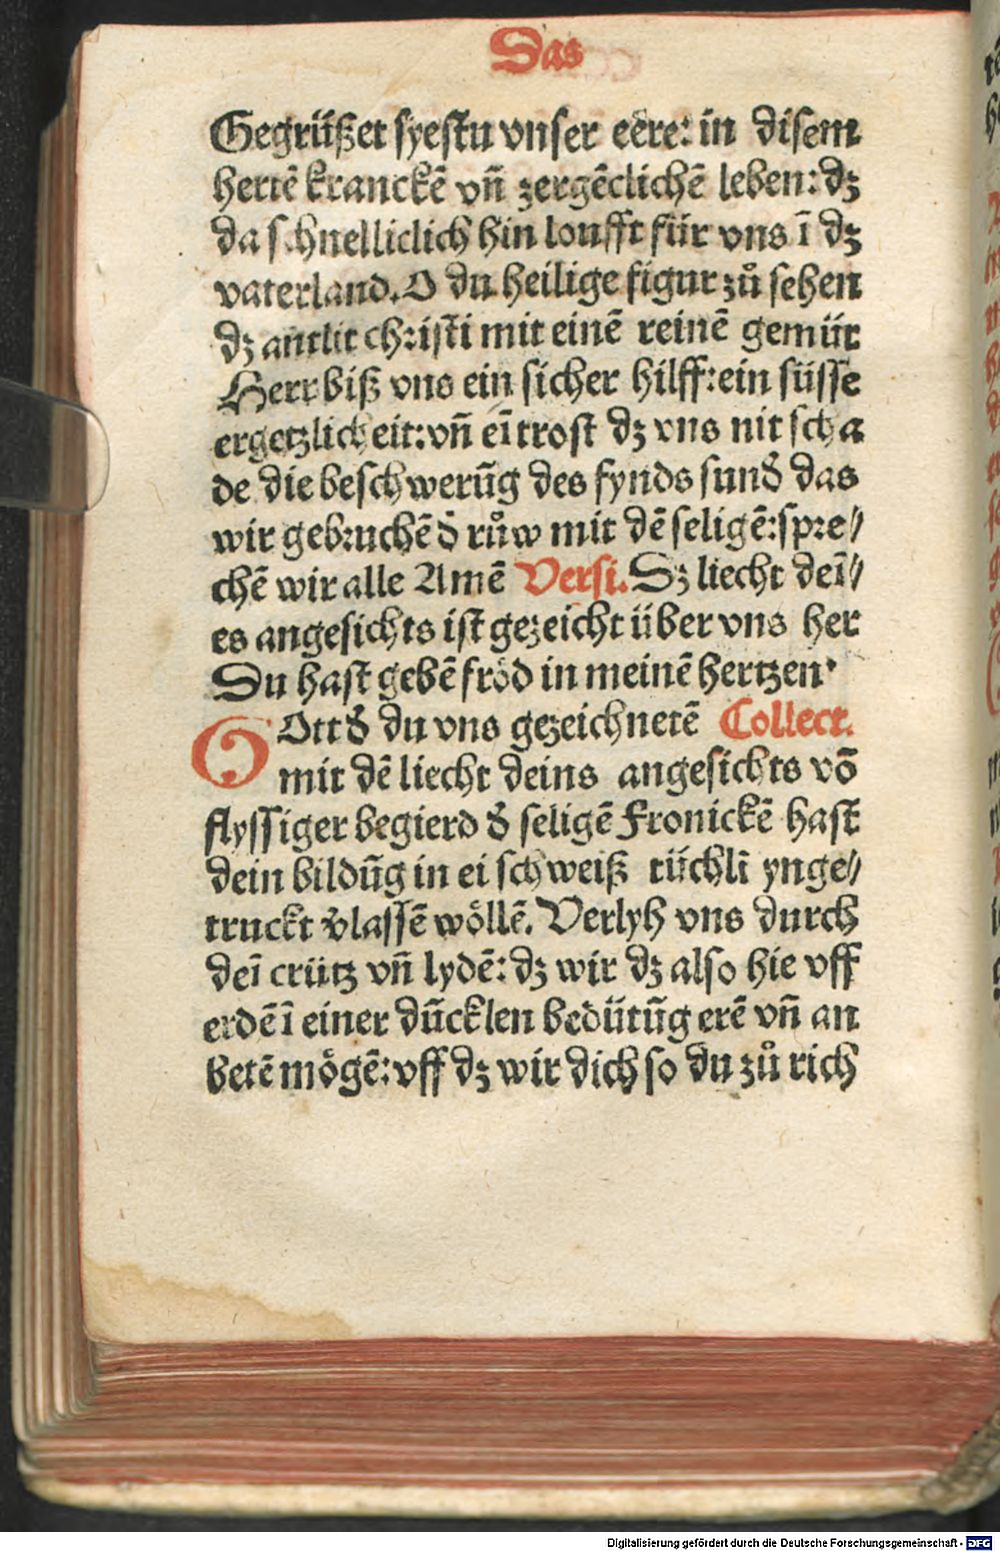 Das
Gegrüßet syestu vnser eere: in disem
hertē kranckē vñ zergēclichē leben: dz
da schnelliclich hin loufft für vns ī dz
vaterland. O du heilige figur zů sehen
dz antlit christi mit einē reinē gemüt
Herr biß vns ein sicher hilff: ein süsse
ergetzlicheit: vñ eī trost dz vns nit scha
de die beschwerūg des fynds sund̾ das
wir gebruchē d̾ růw mit dē seligē: spre⸗
chē wir alle Amē Versi. Dz liecht deī⸗
es angesichts ist gezeicht über vns her
Du hast gebē fröd in meinē hertzen.
GOtt d̾ du vns gezeichnetē Collect.
mit dē liecht deins angesichts vō
flyssiger begierd d̾ seligē Fronickē hast
dein bildūg in ei schweiß tüchlī ynge⸗
truckt v̾lassē wöllē. Verlyh vns durch
deī crütz vñ lydē: dz wir dz also hie vff
erdē ī einer dūcklen bedütūg erē vñ an
betē mögē: vff dz wir dich so du zů rich
Digitalisierung gefördert durch die Deutsche Forschungsgemeinschaft - DFG